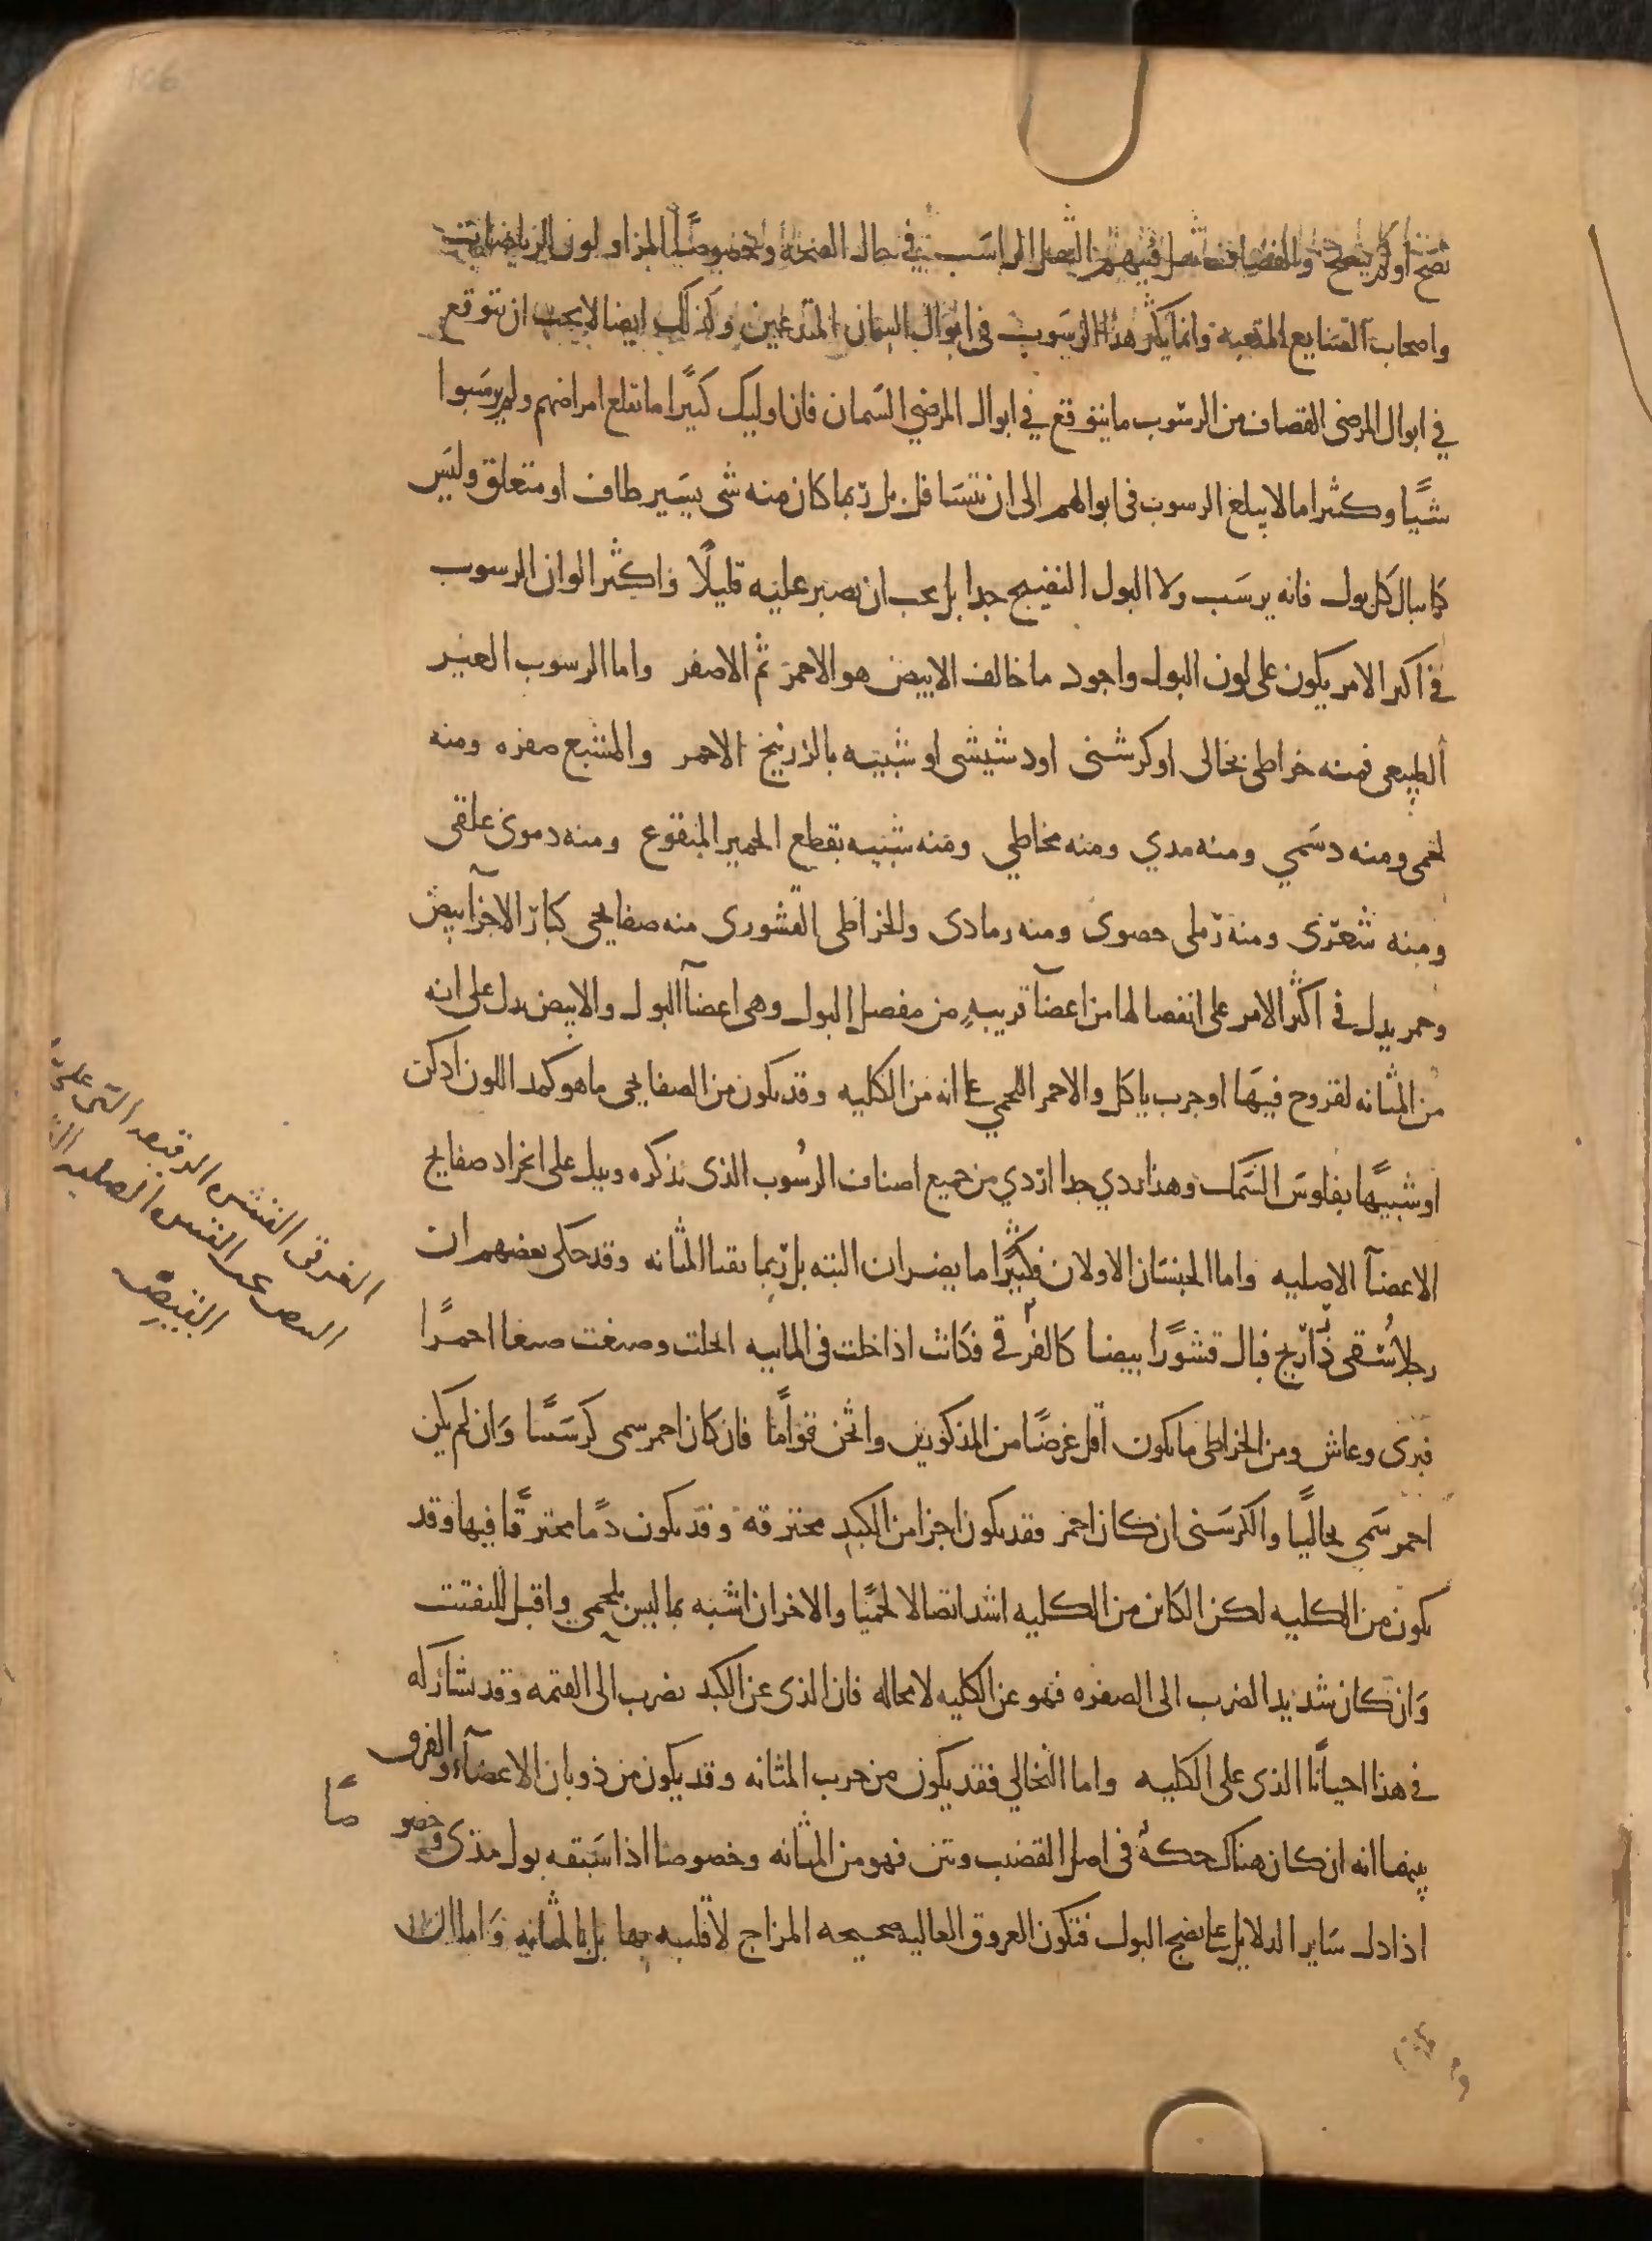 نضج او لم ينضج والقضاف تقل فيهم الثفل الراسب في حال الصحة وخصوصًا المزاولون الرياضات
واصحاب الصنايع المتعبه وانما يكثر هذا الرسوب في ابوال السمان المتدعين وكذلك ايضا لا يجب ان نتوقع
في ابوال المرضى القضاف من الرسوب ما يتوقع في ابوال المرضى السمان فان اوليك كثيرًا ما تقلع امراضهم ولم يرسبوا
شيًا وكثيرا ما لا يبلغ الرسوب في ابوالهم الى ان يتسافل بل ربما كان منه شى يسير طاف او متعلق وليس
كما يبال كل بول فانه يرسب ولا البول النضيج جدا بل يجب ان يصبر عليه قليلًا واكثر الوان الرسوب
في اكثر الامر يكون على لون البول واجود ما خالف الابيض هو الاحمر ثم الاصفر واما الرسوب الغير
الطبيعى فمنه خراطى نخالى او كرسنى او دشيشى او شبيه بالزرنيخ الاحمر والمشبع صفره ومنه
لحمى ومنه دسمي ومنه مدي ومنه مخاطي ومنه شبيه بقطع الخمير المنقوع ومنه دموى علقى
ومنه شعرى ومنه رملى حصوى ومنه رمادى والخراطى القشورى منه صفايحى كبار الاجزآ بيض
وحمر يدل في اكثر الامر على انفصالها من اعضآ قريبه من مفصل البول وهى اعضآ البول والابيض يدل على انه
من المثانه لقروح فيها او جرب ياكل والاحمر اللحمي على انه من الكليه وقد يكون من الصفايحى ما هو كمد اللون ادكن
او شبيهًا بفلوس السمك وهذا ردي جدا اردي من جميع اصناف الرسوب الذى نذكره ويدل على انجراد صفايح
الاعضآ الاصليه واما الجنسان الاولان فكثيرًا ما يضران البته بل ربما نقيا المثانه وقد حكى بعضهم ان
رجلا سُقى ذراريح فبال قشورًا بيضا كالغرقى فكانت اذا خلت في المايه انحلت وصبغت صبغا احمرًا
فبرى وعاش ومن الخراطى ما يكون اقل عرضًا من المذكورين واثخن قوامًا فان كان احمر سمى كرسنيًا وان لم يكن
احمر سمي نخاليًا والكرسنى ان كان احمر فقد يكون اجزا من الكبد محترقه وقد يكون دمًا محترقًا فيها وقد
يكون من الكليه لكن الكاين من الكليه اشد اتصالا لحميًا والاخران اشبه بما ليس بلحمي واقبل للتفتت
وان كان شديد الضرب الى الصفره فهو عن الكليه لا محاله فان الذى عن الكبد يضرب الى القتمه وقد يشاركه
في هذا احيانًا الذى على الكليه واما النخالي فقد يكون من جرب المثانه وقد يكون من ذوبان الاعضآ والفرق
بينهما انه ان كان هناك حكه في اصل القضيب ونتن فهو من المثانه وخصوصا اذا سبقه بول مدى وخصوصًا
اذا دل ساير الدلايل على نضج البول فتكون العروق العاليه صحيحه المزاج لا قلبه بها بل بالمثانه واما ان
الغرقى القشره الرقيقه التى على
البيض عند القشره الصلبه
القيض